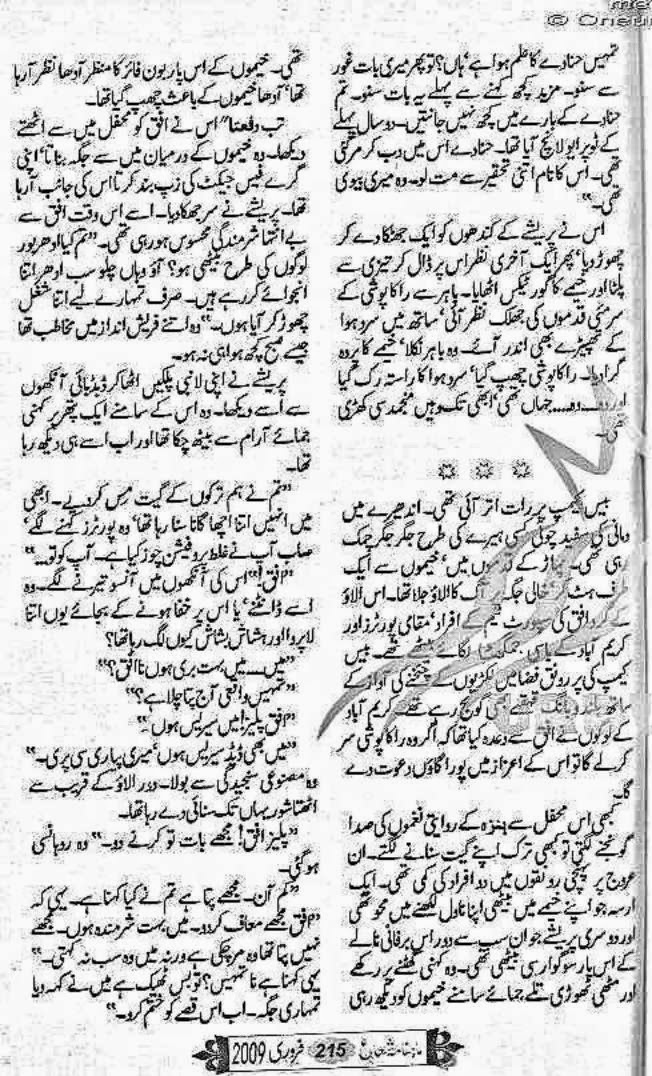 © Oneur
تمہیں حنادے کا علم ہوا ہے‘ ہاں؟ تو پھر میری بات غور
سے سنو۔ مزید کچھ کہنے سے پہلے یہ بات سنو۔ تم
حنادے کے بارے میں کچھ نہیں جانتیں۔ دو سال پہلے
کے ٹو پر ایولانچ آیا تھا۔ حنادے اس میں دب کر مر گئی
تھی۔ اس کا نام اتنی تحقیر سے مت لو۔ وہ میری بیوی
تھی۔“
اس نے پریشے کے کندھوں کو ایک جھٹکا دے کر
چھوڑ دیا‘ پھر ایک آخری نظر اس پر ڈال کر تیزی سے
پلٹا اور خیمے کا گور ٹیکس اٹھایا۔ باہر سے راکاپوشی کے
سرمئی قدموں کی جھلک نظر آئی‘ ساتھ میں سرد ہوا
کے تھپیڑے بھی اندر آئے۔ وہ باہر نکلا‘ خیمے کا پردہ
گرا دیا۔ راکاپوشی چھپ گیا‘ سرد ہوا کا راستہ رک گیا
اور وہ۔۔۔ وہ۔۔۔ جہاں تھی‘ ابھی تک وہیں منجمد سی کھڑی
تھی۔
بیس کیمپ پر رات اتر آئی تھی۔ اندھیرے میں
کی سفید چوٹی کسی ہیرے کی طرح جگر جگر چمک
رہی تھی۔ پہاڑ کے قدموں میں‘ خیموں سے ایک
طرف ہٹ کر خالی جگہ پر آگ کا الاؤ جلا تھا۔ اس الاؤ
کے گرد افق کی سپورٹ ٹیم کے افراد‘ مقامی پورٹرز اور
کریم آباد کے باسی جمگھٹا لگائے بیٹھے تھے۔ بیس
کیمپ کی پر رونق فضا میں لکڑیوں کے چٹخنے کی آواز کے
ساتھ قہقہے بھی گونج رہے تھے۔ کریم آباد
کے لوگوں نے افق سے وعدہ کیا تھا کہ اگر وہ راکاپوشی سر
کرلے گا تو اس کے اعزاز میں پورا گاؤں دعوت دے
گا۔
کبھی اس محفل سے ہنزہ کے روایتی نغموں کی صدا
گونجنے لگتی تو کبھی ترک اپنے گیت سنانے لگتے۔ ان
عروج پر پہنچی رونقوں میں دو افراد کی کمی تھی۔ ایک
ارسہ جو اپنے خیمے میں بیٹھی اپنا ناول لکھنے میں محو تھی
اور دوسری پریشے جو ان سب سے دور اس برفانی نالے
کے اس پار سوگوار سی بیٹھی تھی۔ وہ کہنی گھٹنے پر رکھے
اور مٹھی ٹھوڑی تلے جمائے سامنے خیموں کو دیکھ رہی
تھی۔ خیموں کے اس پار بون فائر کا منظر آدھا نظر آرہا
تھا‘ آدھا خیموں کے باعث چھپ گیا تھا۔
تب دفعتا“ اس نے افق کو محفل میں سے اٹھتے
دیکھا۔ وہ خیموں کے درمیان میں سے جگہ بناتا‘ اپنی
گرے فیس جیکٹ کی زپ بند کرتا اس کی جانب آرہا
تھا۔ پریشے نے سر جھکا دیا۔ اسے اس وقت افق سے
بے انتہا شرمندگی محسوس ہو رہی تھی۔ ”تم کیا ادھر بور
لوگوں کی طرح بیٹھی ہو؟ آؤ وہاں چلو سب ادھر اتنا
انجوائے کر رہے ہیں۔ صرف تمہارے لیے اتنا شغل
چھوڑ کر آیا ہوں۔“ وہ اتنے فریش انداز میں مخاطب تھا
جیسے صبح کچھ ہوا ہی نہ ہو۔
پریشے نے اپنی لانبی پلکیں اٹھا کر ڈبڈبائی آنکھوں
سے اسے دیکھا۔ وہ اس کے سامنے ایک پتھر پر کہنی
جمائے آرام سے بیٹھ چکا تھا اور اب اسے ہی دیکھ رہا
تھا۔
”تم نے ہم ترکوں کے گیت مس کر دیے۔ ابھی
میں انہیں اتنا اچھا گانا سنا رہا تھا‘ وہ پورٹرز کہنے لگے‘
صاب آپ نے غلط پروفیشن چوز کیا ہے۔ آپ کو تو۔۔۔“
”افق!“ اس کی آنکھوں میں آنسو تیرنے لگے۔ وہ
اسے ڈانٹنے‘ یا اس پر خفا ہونے کے بجائے یوں اتنا
لاپروا اور ہشاش بشاش کیوں لگ رہا تھا؟
”میں۔۔۔ میں بہت بری ہوں نا افق؟“
”تمہیں واقعی آج پتا چلا ہے؟“
”افق پلیز! میں سیریس ہوں۔“
”میں بھی ڈیڈ سیریس ہوں‘ میری پیاری سی پری۔“
وہ مصنوعی سنجیدگی سے بولا۔ دور الاؤ کے قریب سے
اٹھتا شور یہاں تک سنائی دے رہا تھا۔
”پلیز افق! مجھے بات تو کرنے دو۔“ وہ روہانسی
ہو گئی۔
”کم آن۔ مجھے پتا ہے تم نے کیا کہنا ہے۔ یہی کہ
”افق مجھے معاف کردو۔ میں بہت شرمندہ ہوں۔ مجھے
نہیں پتا تھا وہ مر چکی ہے ورنہ میں وہ سب نہ کہتی۔“
یہی کہنا ہے نا تمہیں؟ تو بس ٹھیک ہے میں نے کہہ دیا
تمہاری جگہ۔ اب اس قصے کو ختم کرو۔“
ماہنامہ شعاع 215 فروری 2009